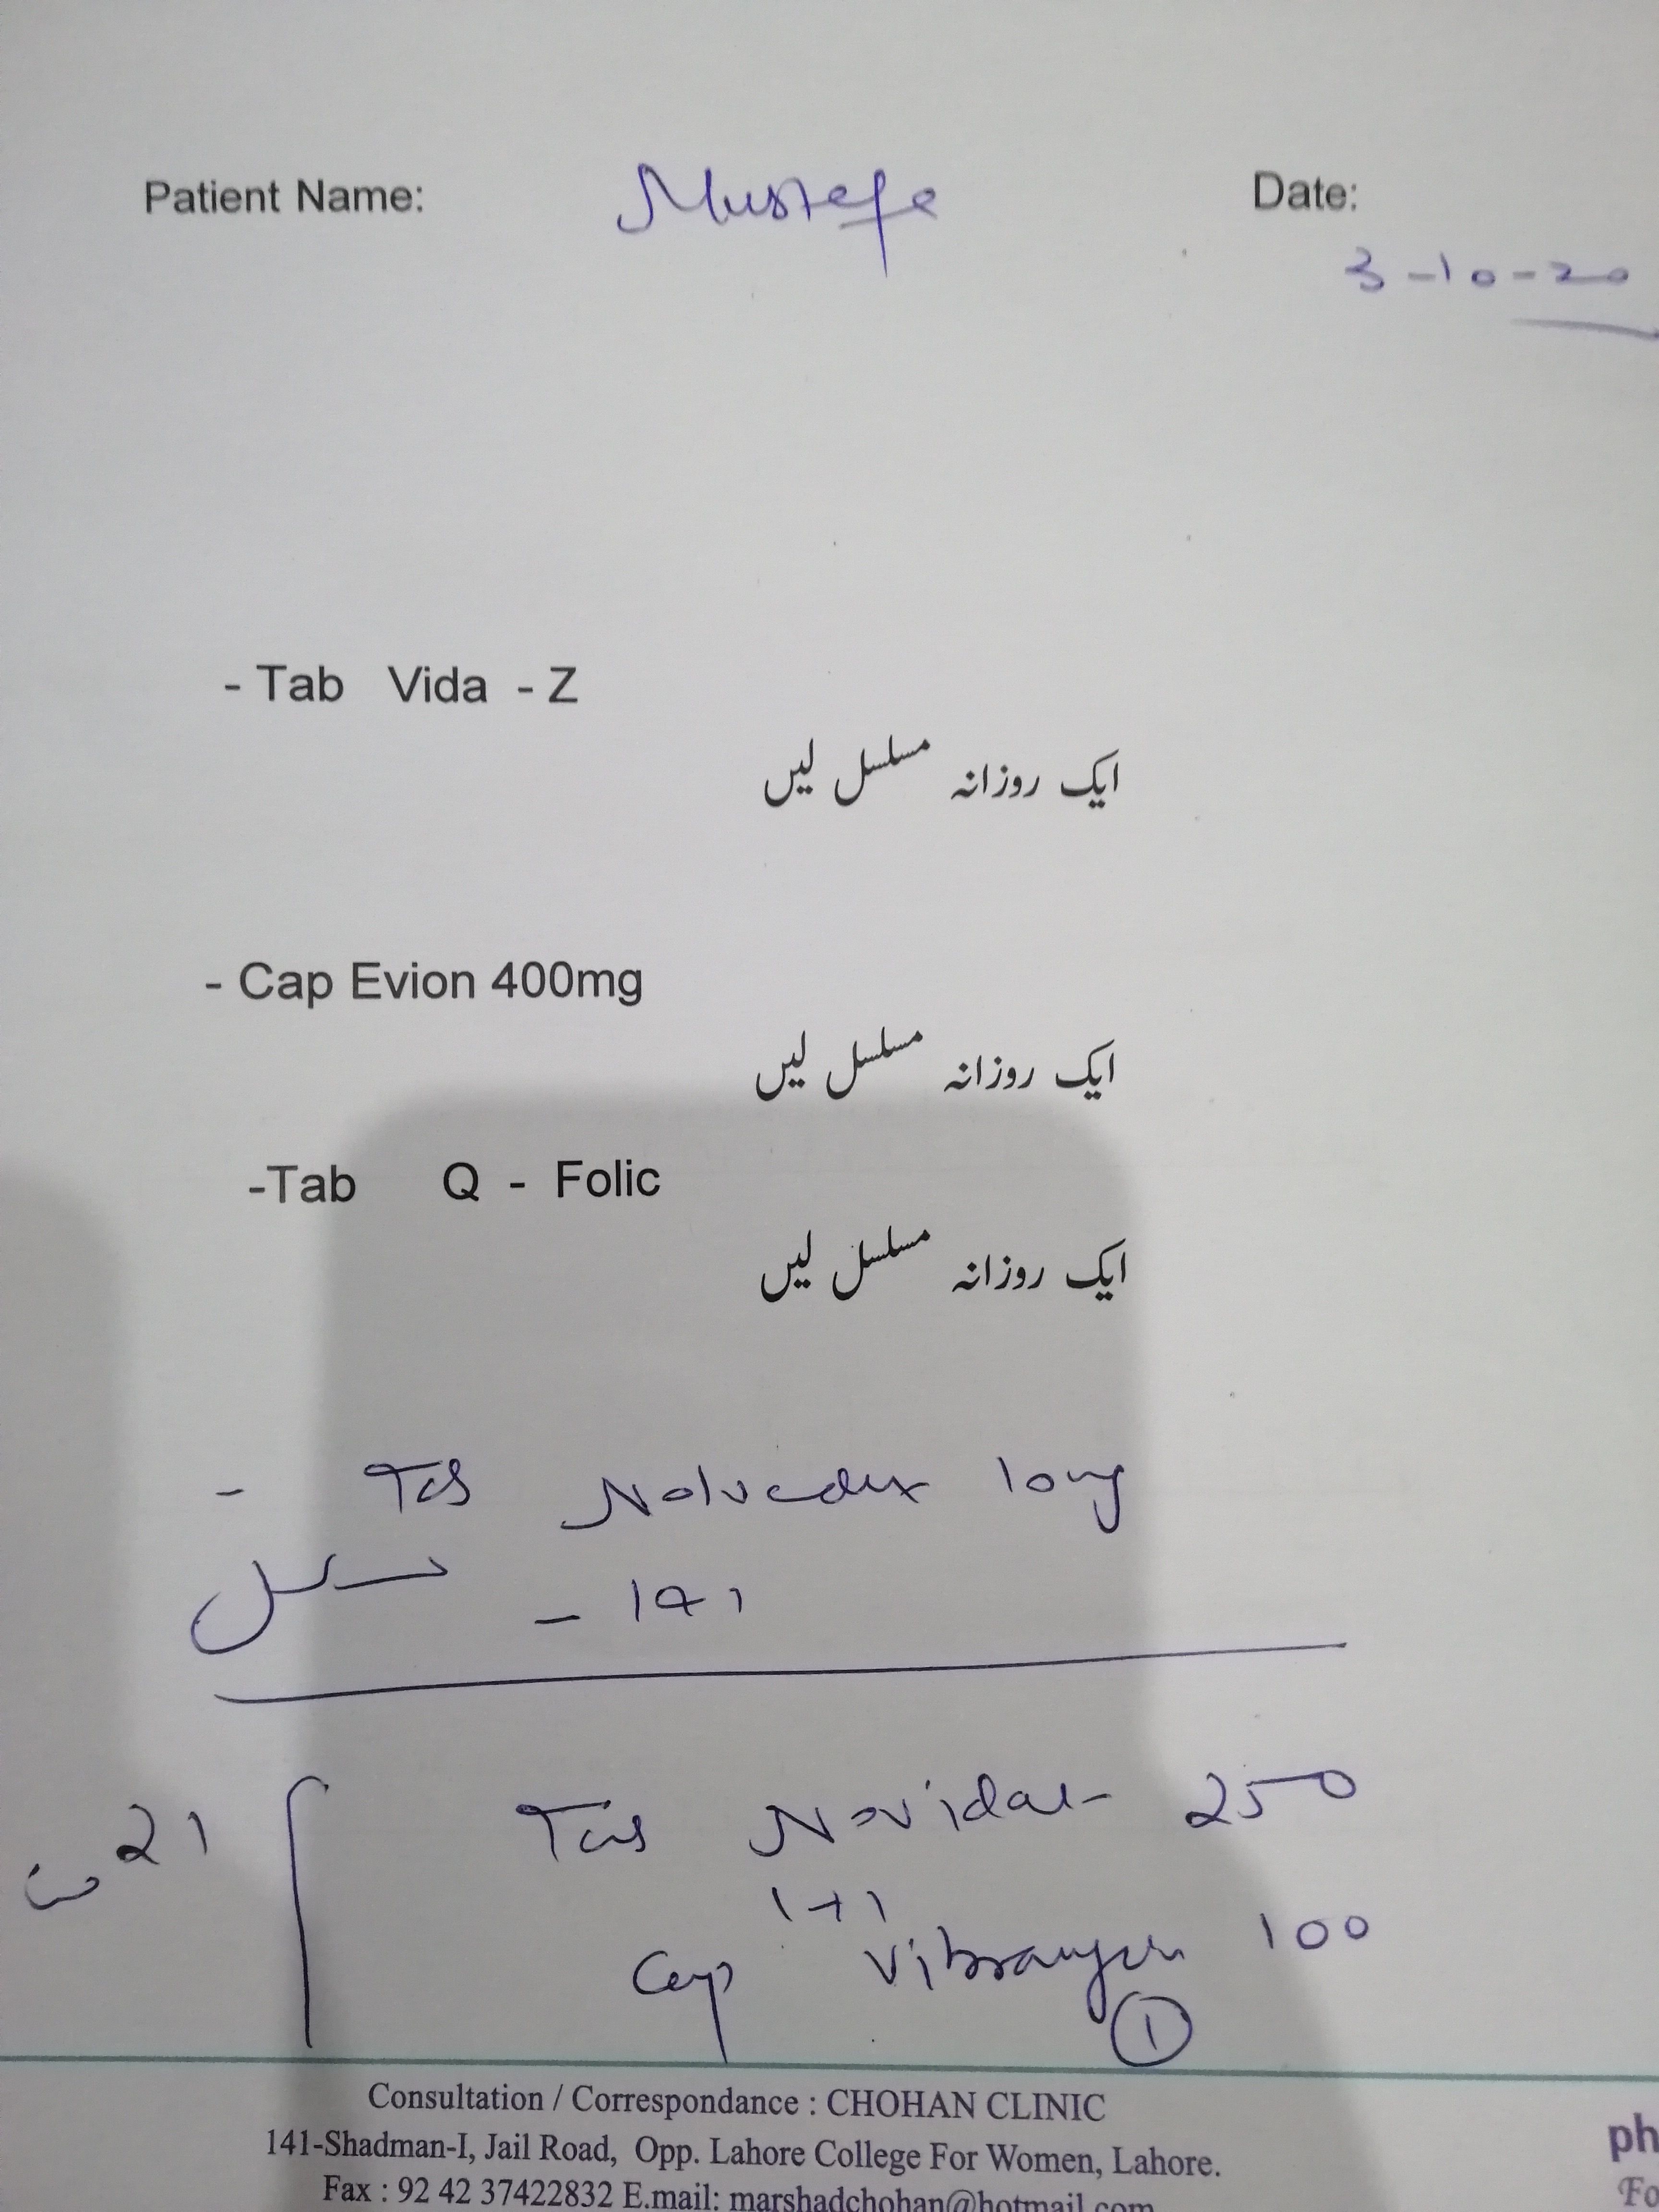 Patient Name: Mustafa Date:
3-10-20
- Tab Vida - Z
ایک روزانہ مسلسل لیں
- Cap Evion 400mg
ایک روزانہ مسلسل لیں
-Tab Q - Folic
ایک روزانہ مسلسل لیں
- Tab Nolvadex 10mg
مسلسل - 1+1
21 Tab Novidat 250
1+1
Cap Vibramycin 100
1
Consultation / Correspondance : CHOHAN CLINIC
141-Shadman-I, Jail Road, Opp. Lahore College For Women, Lahore.
ph
Fax : 92 42 37422832 E.mail: marshadchohan@hotmail.com
Fo